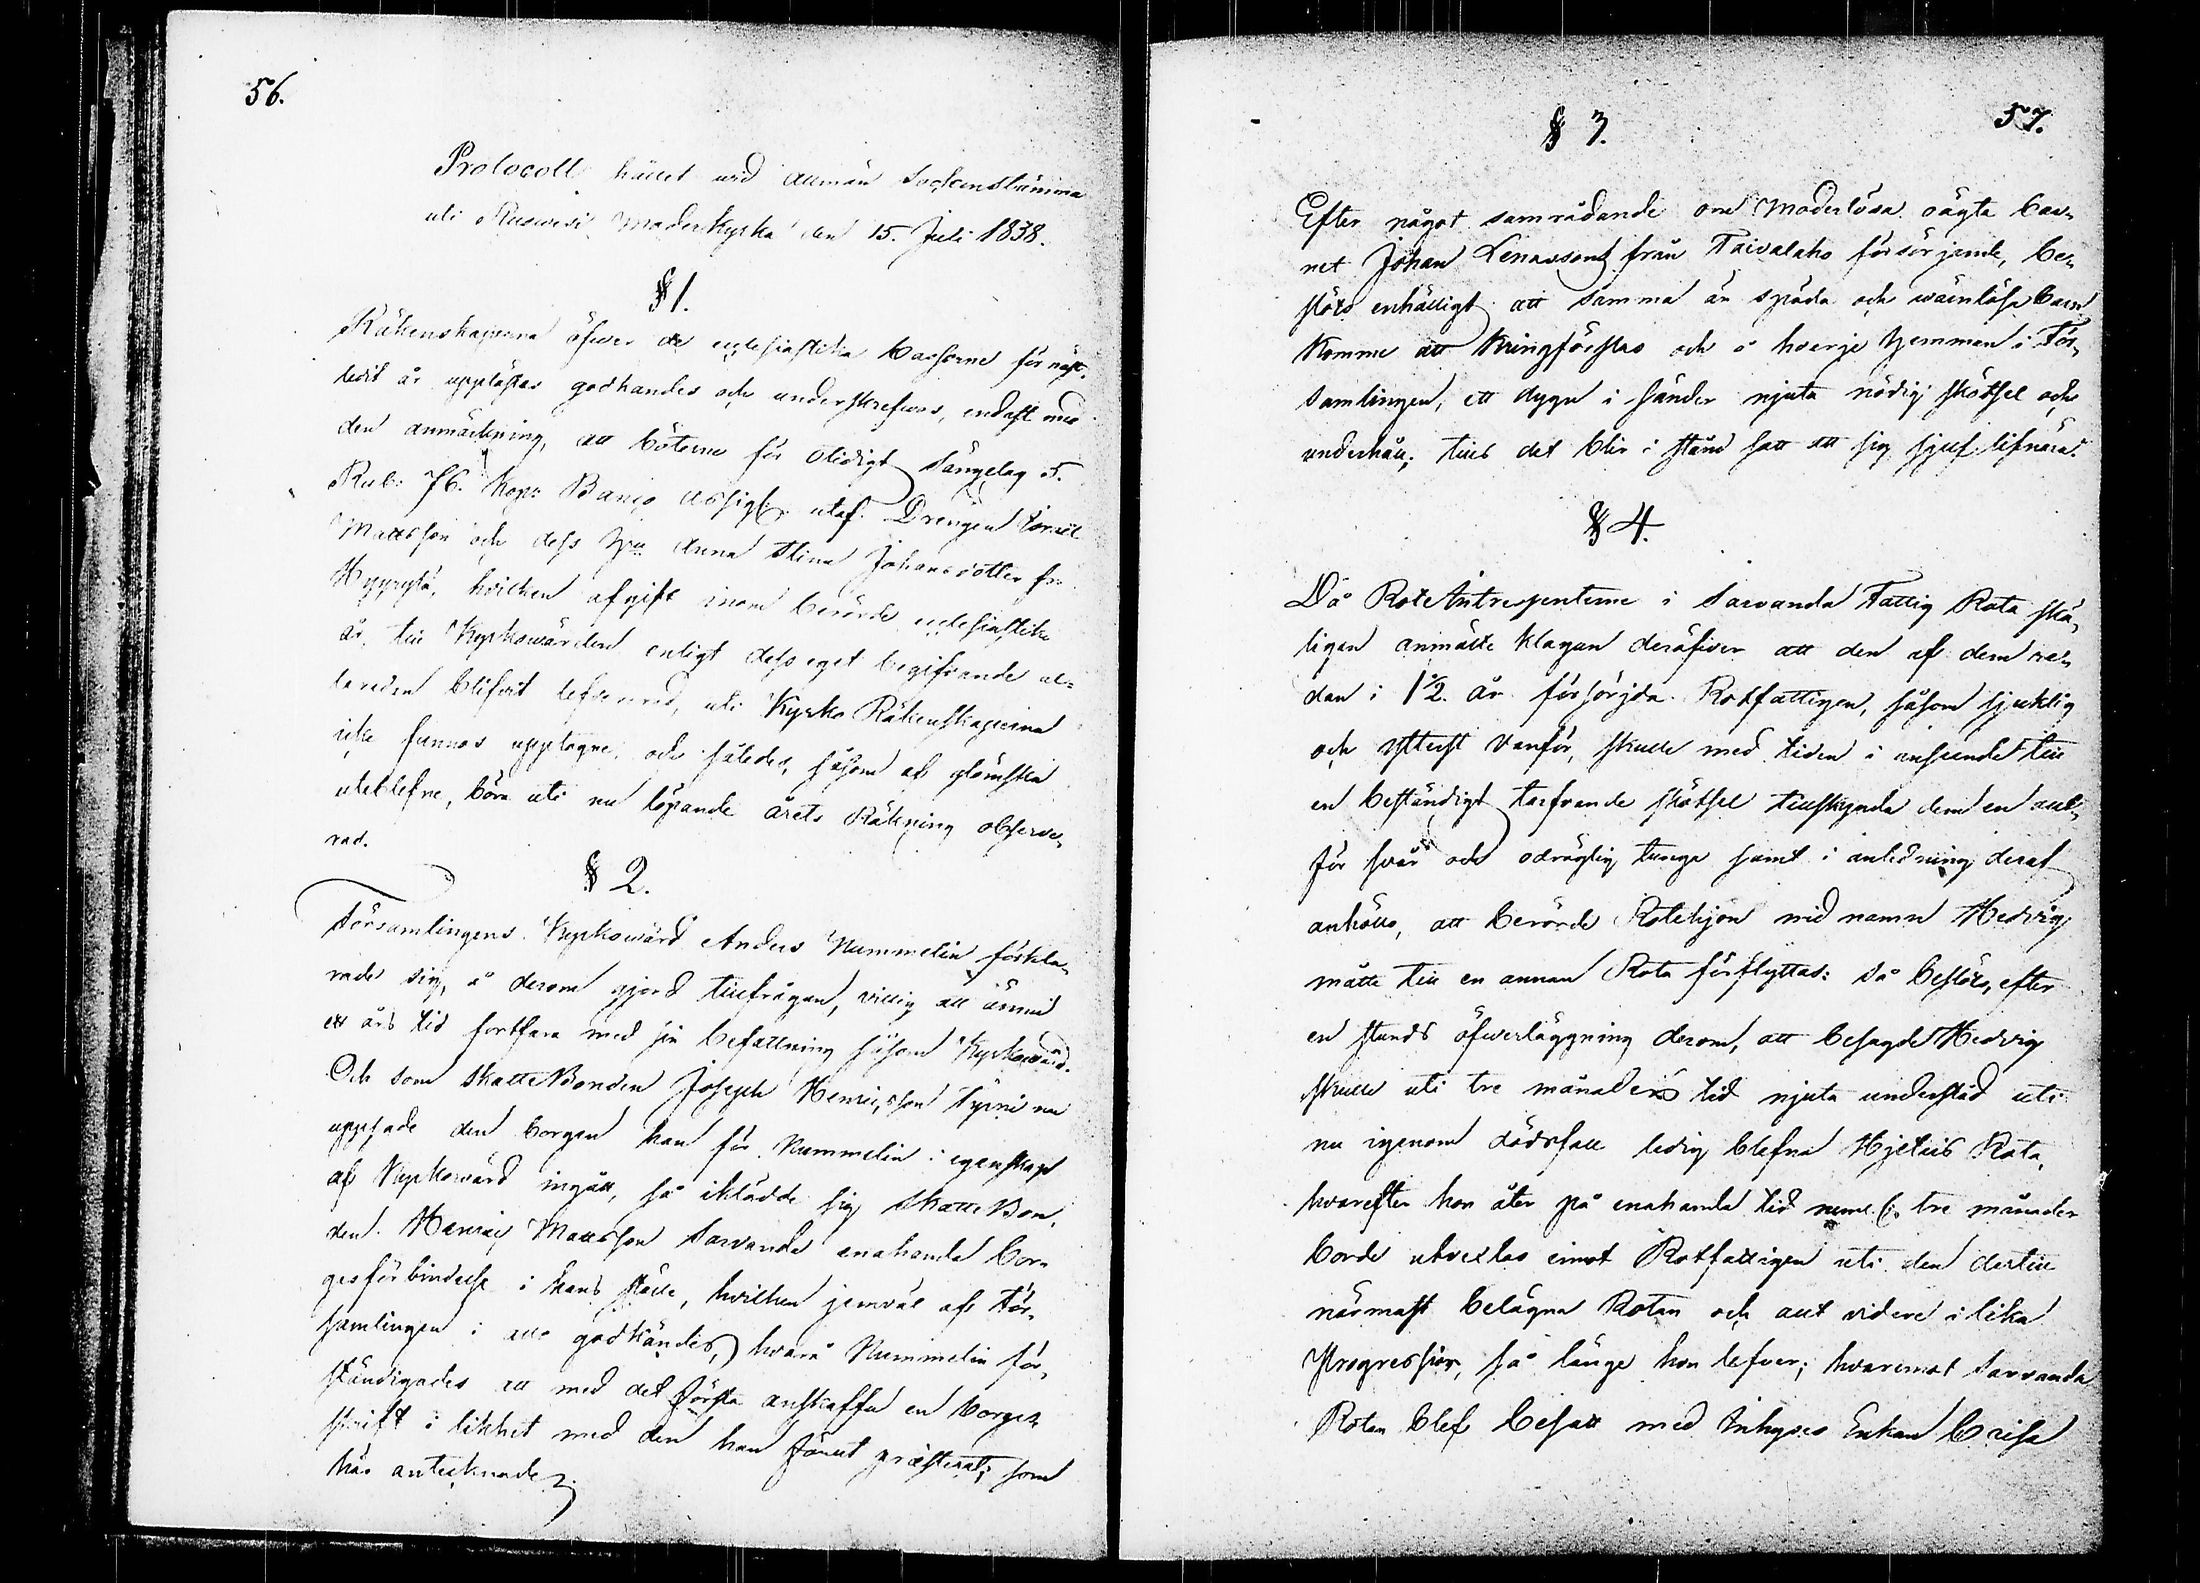 56.
Protocoll hållet vid allmän Sockenstämma
uti Ruovesi Moderkyrka den 15. Juli 1838.
§ 1.
Räkenskaperna öfver de ecclesiastika Cassorne för näst-
ledit år upplästas godkändes och underskrefvos, endast med
den anmärkning, att böterne för otidigt sängelag 5.
Rub: 76. Kop: Banco Assign: utaf Drengen Israel
Mattsson och dess Hu Anna Stina Johansdotter fr.
Hyyrylä, hvilken afgift inom berörde ecclesiastike
år, till Kyrkowärden enligt dess eget begifvande al-
laredan blifvit lefvererad, uti Kyrko Räkenskaperna
icke funnos upptagne, och således, såsom af glömska
uteblefne, böra uti nu löpande årets Räkning observe-
rad.
§ 2.
Församlingens Kyrkowärd Anders Nummelin förkla-
rade sig, å derom gjord tillfrågan, villig att ännu
ett års tid fortfara med sin befattning såsom Kyrkowärd.
Och som Skattebonden Joseph Henricsson Tyrni nu
uppsade den borgen han för Nummelin i egenskap
af Kyrkowärd ingått, så iklädde sig Skattebon-
den Henric Mattsson Sarvanda enahanda bor-
gesförbindelse i hans ställe, hvilken jemväl af För-
samlingen i allo godkändes, hvarå Nummelin för-
ständigades att med det första anskaffa en borges
skrift i likhet med den han förut præsterat; som
här antecknades.
57.
§ 3.
Efter något samrådande om Moderlösa oägta bar-
net Johan Lenasons från Taivalaho försörjande, be-
slöts enhälligt att samma än späda och wärnlösa barn
komme att kringföreslas och å hvarje hemman i För-
samlingen, ett dygn i sänder njuta nödig skötsel och
underhåll; tills det blir i stånd satt att sig sjelf lifnära.
§ 4.
Då Rote Intressenterne i Sarvanda Fattig Rota skä-
ligen anmälte klagan deröfver att den af dem re-
dan i 1½ år försörjda Rotfattigen, såsom sjuklig
och ytterst vanför, skulle med tiden i anseende till
en beständigt tarfvande skötsel tillskynda dem en allt-
för svår och odräglig tunga samt i anledning deraf
anhöllo, att berörde Rotehjon vid namn Hedvig
måtte till en annan Rota förflyttas: Så beslöts, efter
en stunds öfverläggning derom, att besagde Hedvig
skulle uti tre månaders tid njuta understöd uti
nu igenom dödsfall ledig blefna Hjelais Rota,
hvarefter hon åter på enahanda tid neml. tre månader
borde utvexlas emot Rotfattigen uti den dertill
närmast belägna Rotan och allt vidare i lika
Progression, så länge hon lefver; hvaremot Sarvanda
Rotan blef besatt med Inhyses Enkan Brisa